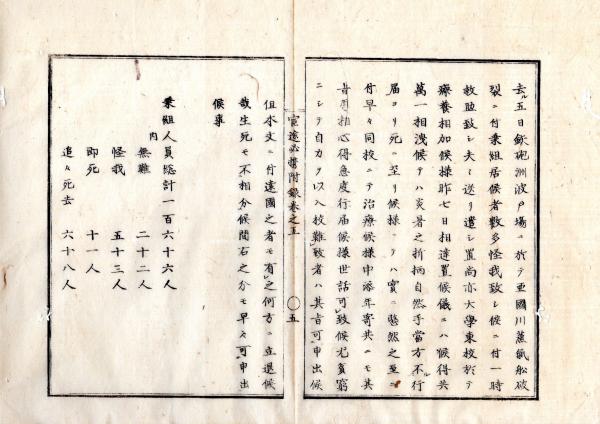 去ル五日鉄砲洲波戸場ニ於テ亜國川蒸氣舩破
裂ニ付乗組居候者數多怪我致シ候ニ付一時
救助致シ夫々送リ遣シ置尚亦大學東校於テ
療養相加候様昨七日相達置候儀ニハ候得共
萬一相洩候テハ炎暑之折柄自然手當方不行
届ヨリ死ニ至リ候様ニテハ實ニ愍然之至ニ
付早々同校ニテ治療候様申添年寄共ニモ其
旨厚相心得急度行届候様世話可致候尤貧窮
ニシテ自力ヲ以入校難致者ハ其旨可申出候
官途必携附録巻之五
五
但本文ニ付遠國之者モ有之何方ニ立退候
哉生死モ不相分候間右之分モ早々可申出
候事
乗組人員總計一百六十六人
内
無難 二十二人
怪我 五十三人
即死 十一人
追々死去 六十八人